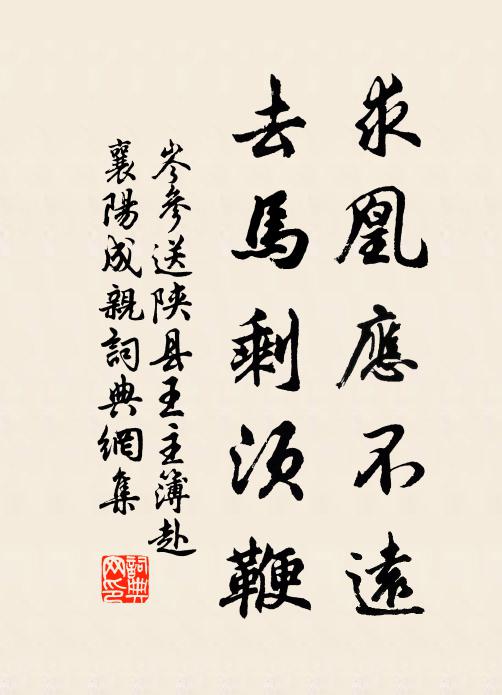 求凰應不遠
去馬剩須鞭
岑參送陝县王主簿赴
襄陽成親詞典網集
詞典
网印